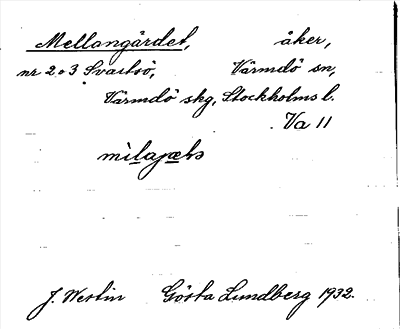 Mellangärdet, åker,
nr 2 o 3 Svartsö, Värmdö sn,
Värmdö skg, Stockholms l.
Va 11
J. Westin Gösta Lundberg 1932.